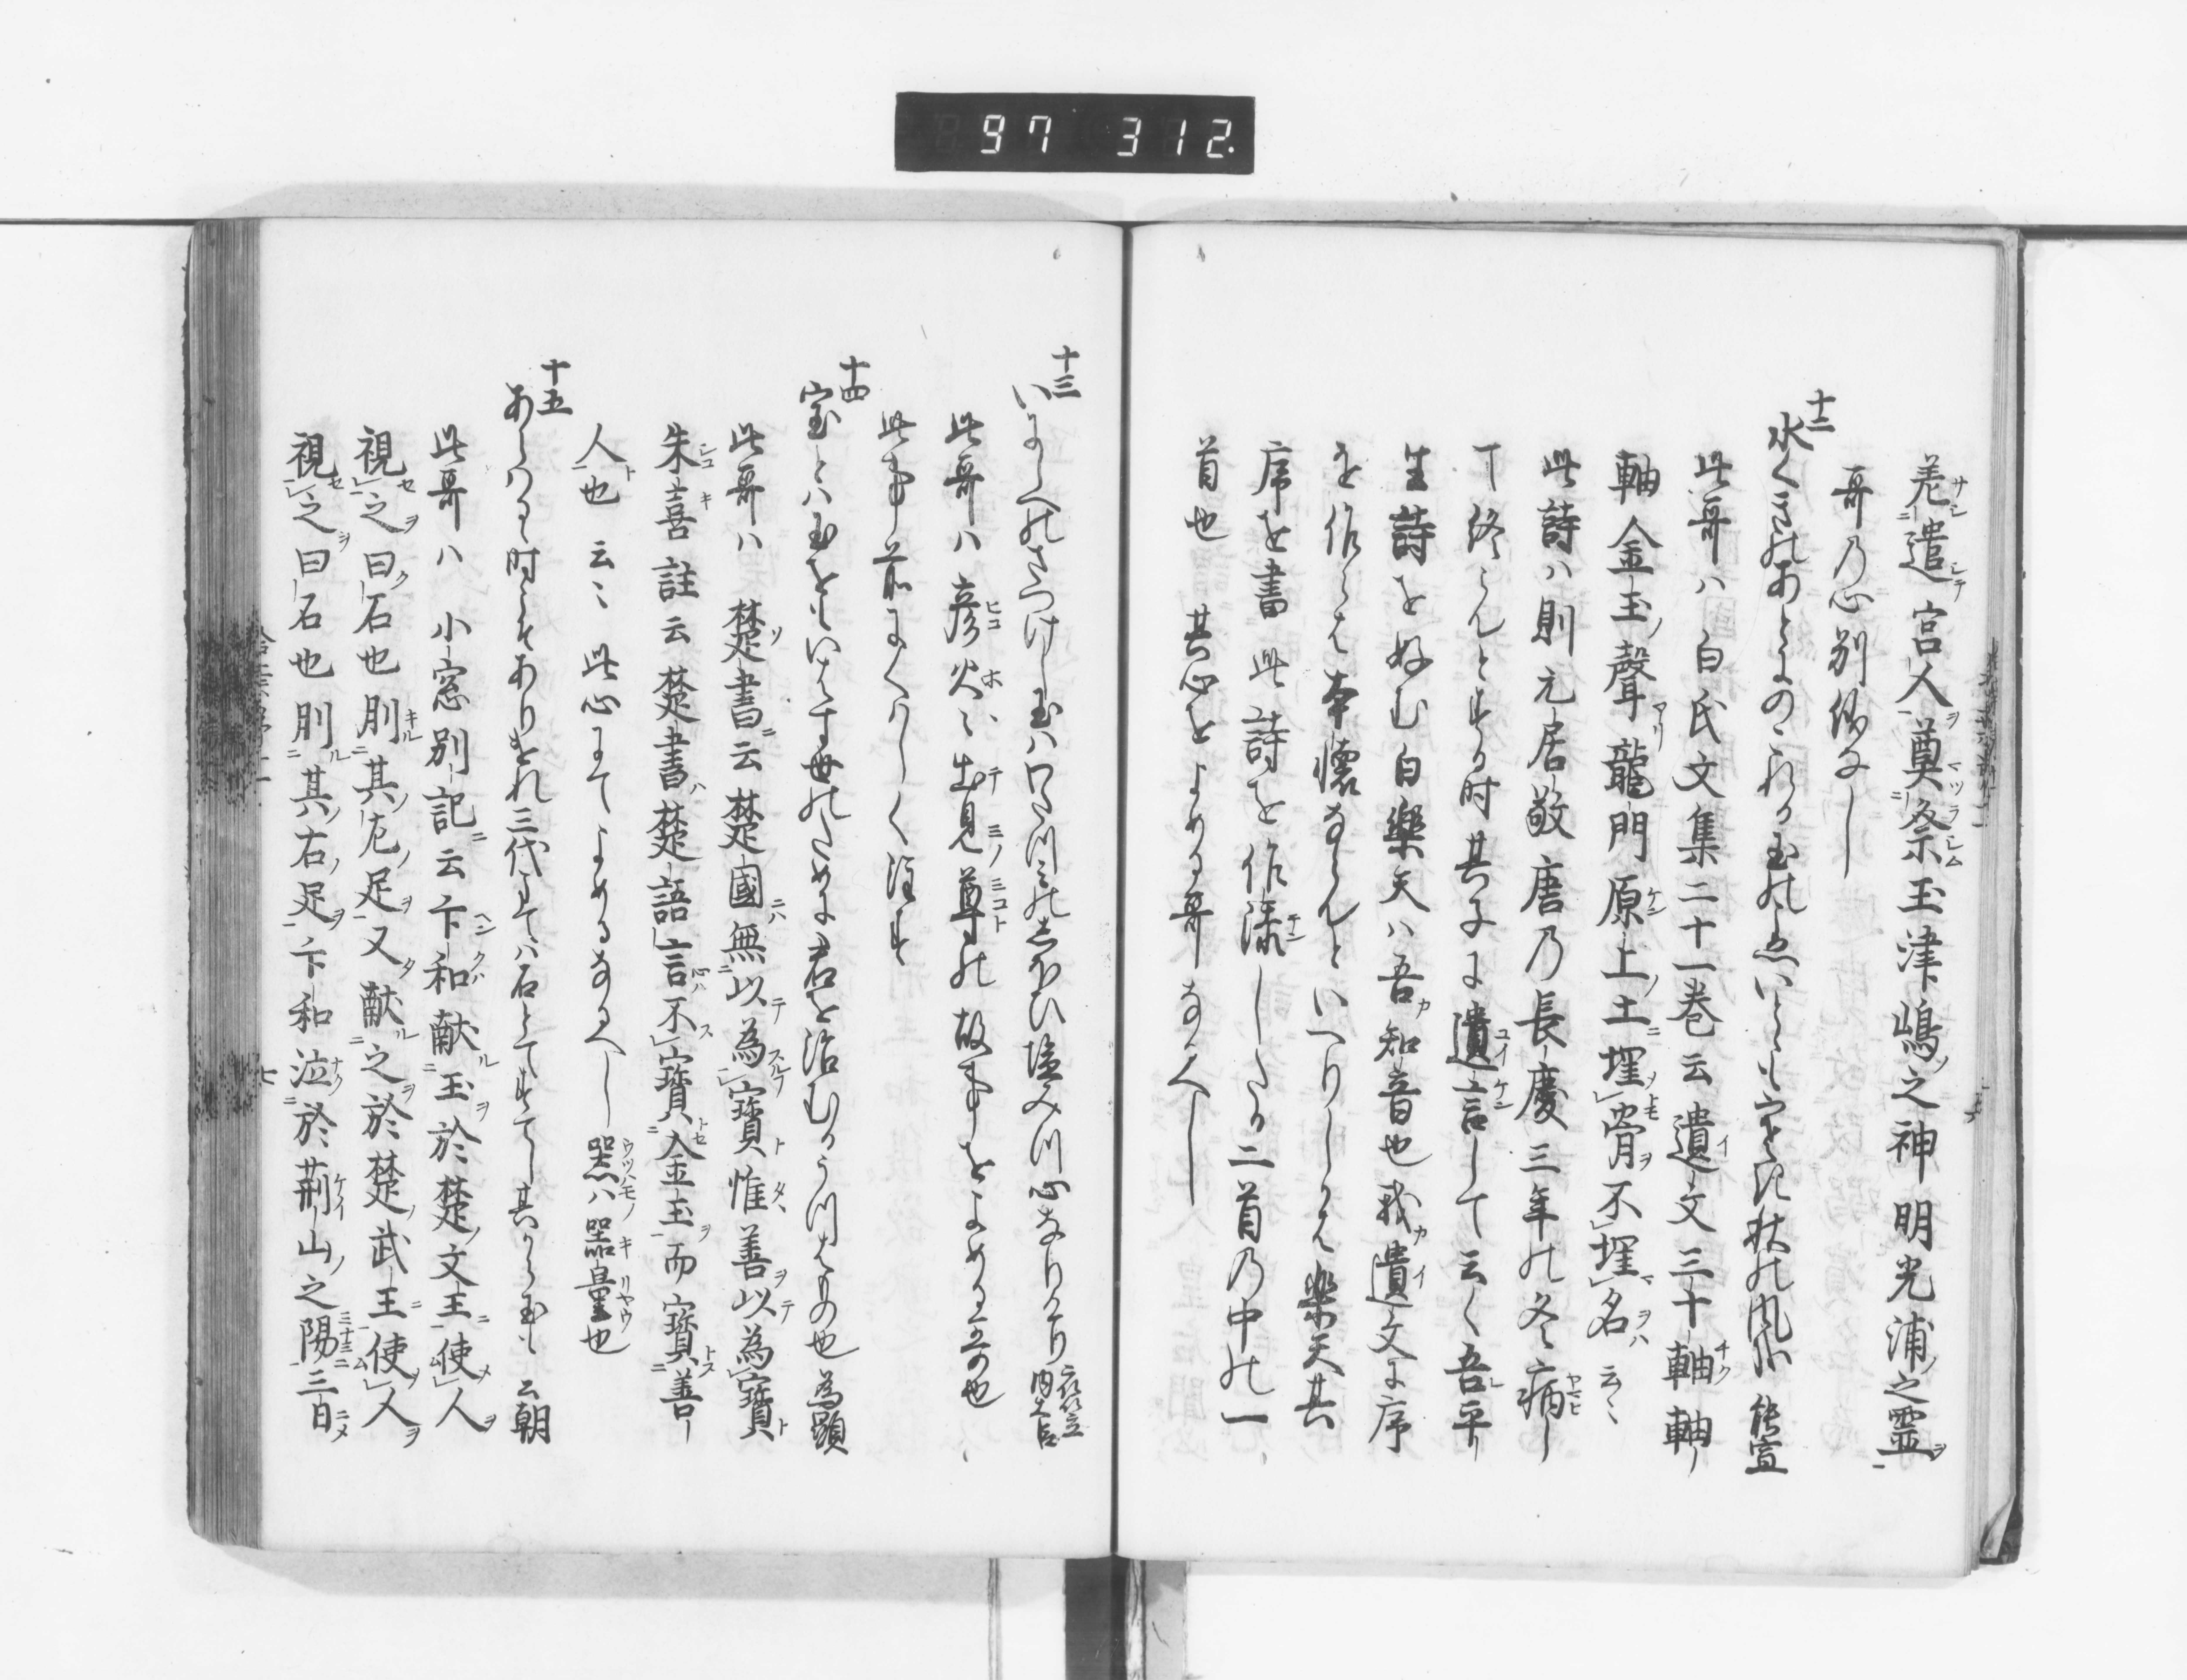 97 312.
差遣宮人奠祭玉津嶋之神明光浦之霊
哥乃心別儀なし
十二
水くきのあとにのこれる玉のこゑいとゝも寒き秋の風哉 能宣
此哥ハ白氏文集二十一巻云遺文三十軸軸
軸金玉聲龍門原上土埋骨不埋名云々
此詩ハ則元居敬唐乃長慶三年の冬病
て終らんとする時其子に遺言して云く吾平
生詩を好む白樂天ハ吾知音也我遺文に序
を作らは本懐ならんといへりしかは楽天其
序を書此詩を作添したる二首の中の一
首也其心をよめる哥なるへし
十三
いにしへのさつけし玉ハわたつみのしほひ塩みつ心なりけり 衣笠内大臣
此哥ハ彦火々出見尊の故事をよめる哥也
此事前にくハしく注す
十四
宝とハ玉をもいはす世のために君を治むるうつはもの也 為顕
此哥ハ楚書云楚國無以為寶惟善以為寶
朱熹註云楚書楚語言不寶金玉而寶善
人也云々此心にてよめるなるへし 器ハ器量也
十五
あらハるゝ時こそありけれ三代まてハ石とてすてし其から玉も 公朝
此哥ハ小窓別記云卞和献玉於楚文王使人
視之曰石也刖其左足又献之於楚武王使人
視之曰石也刖其右足卞和泣於荊山之陽三日